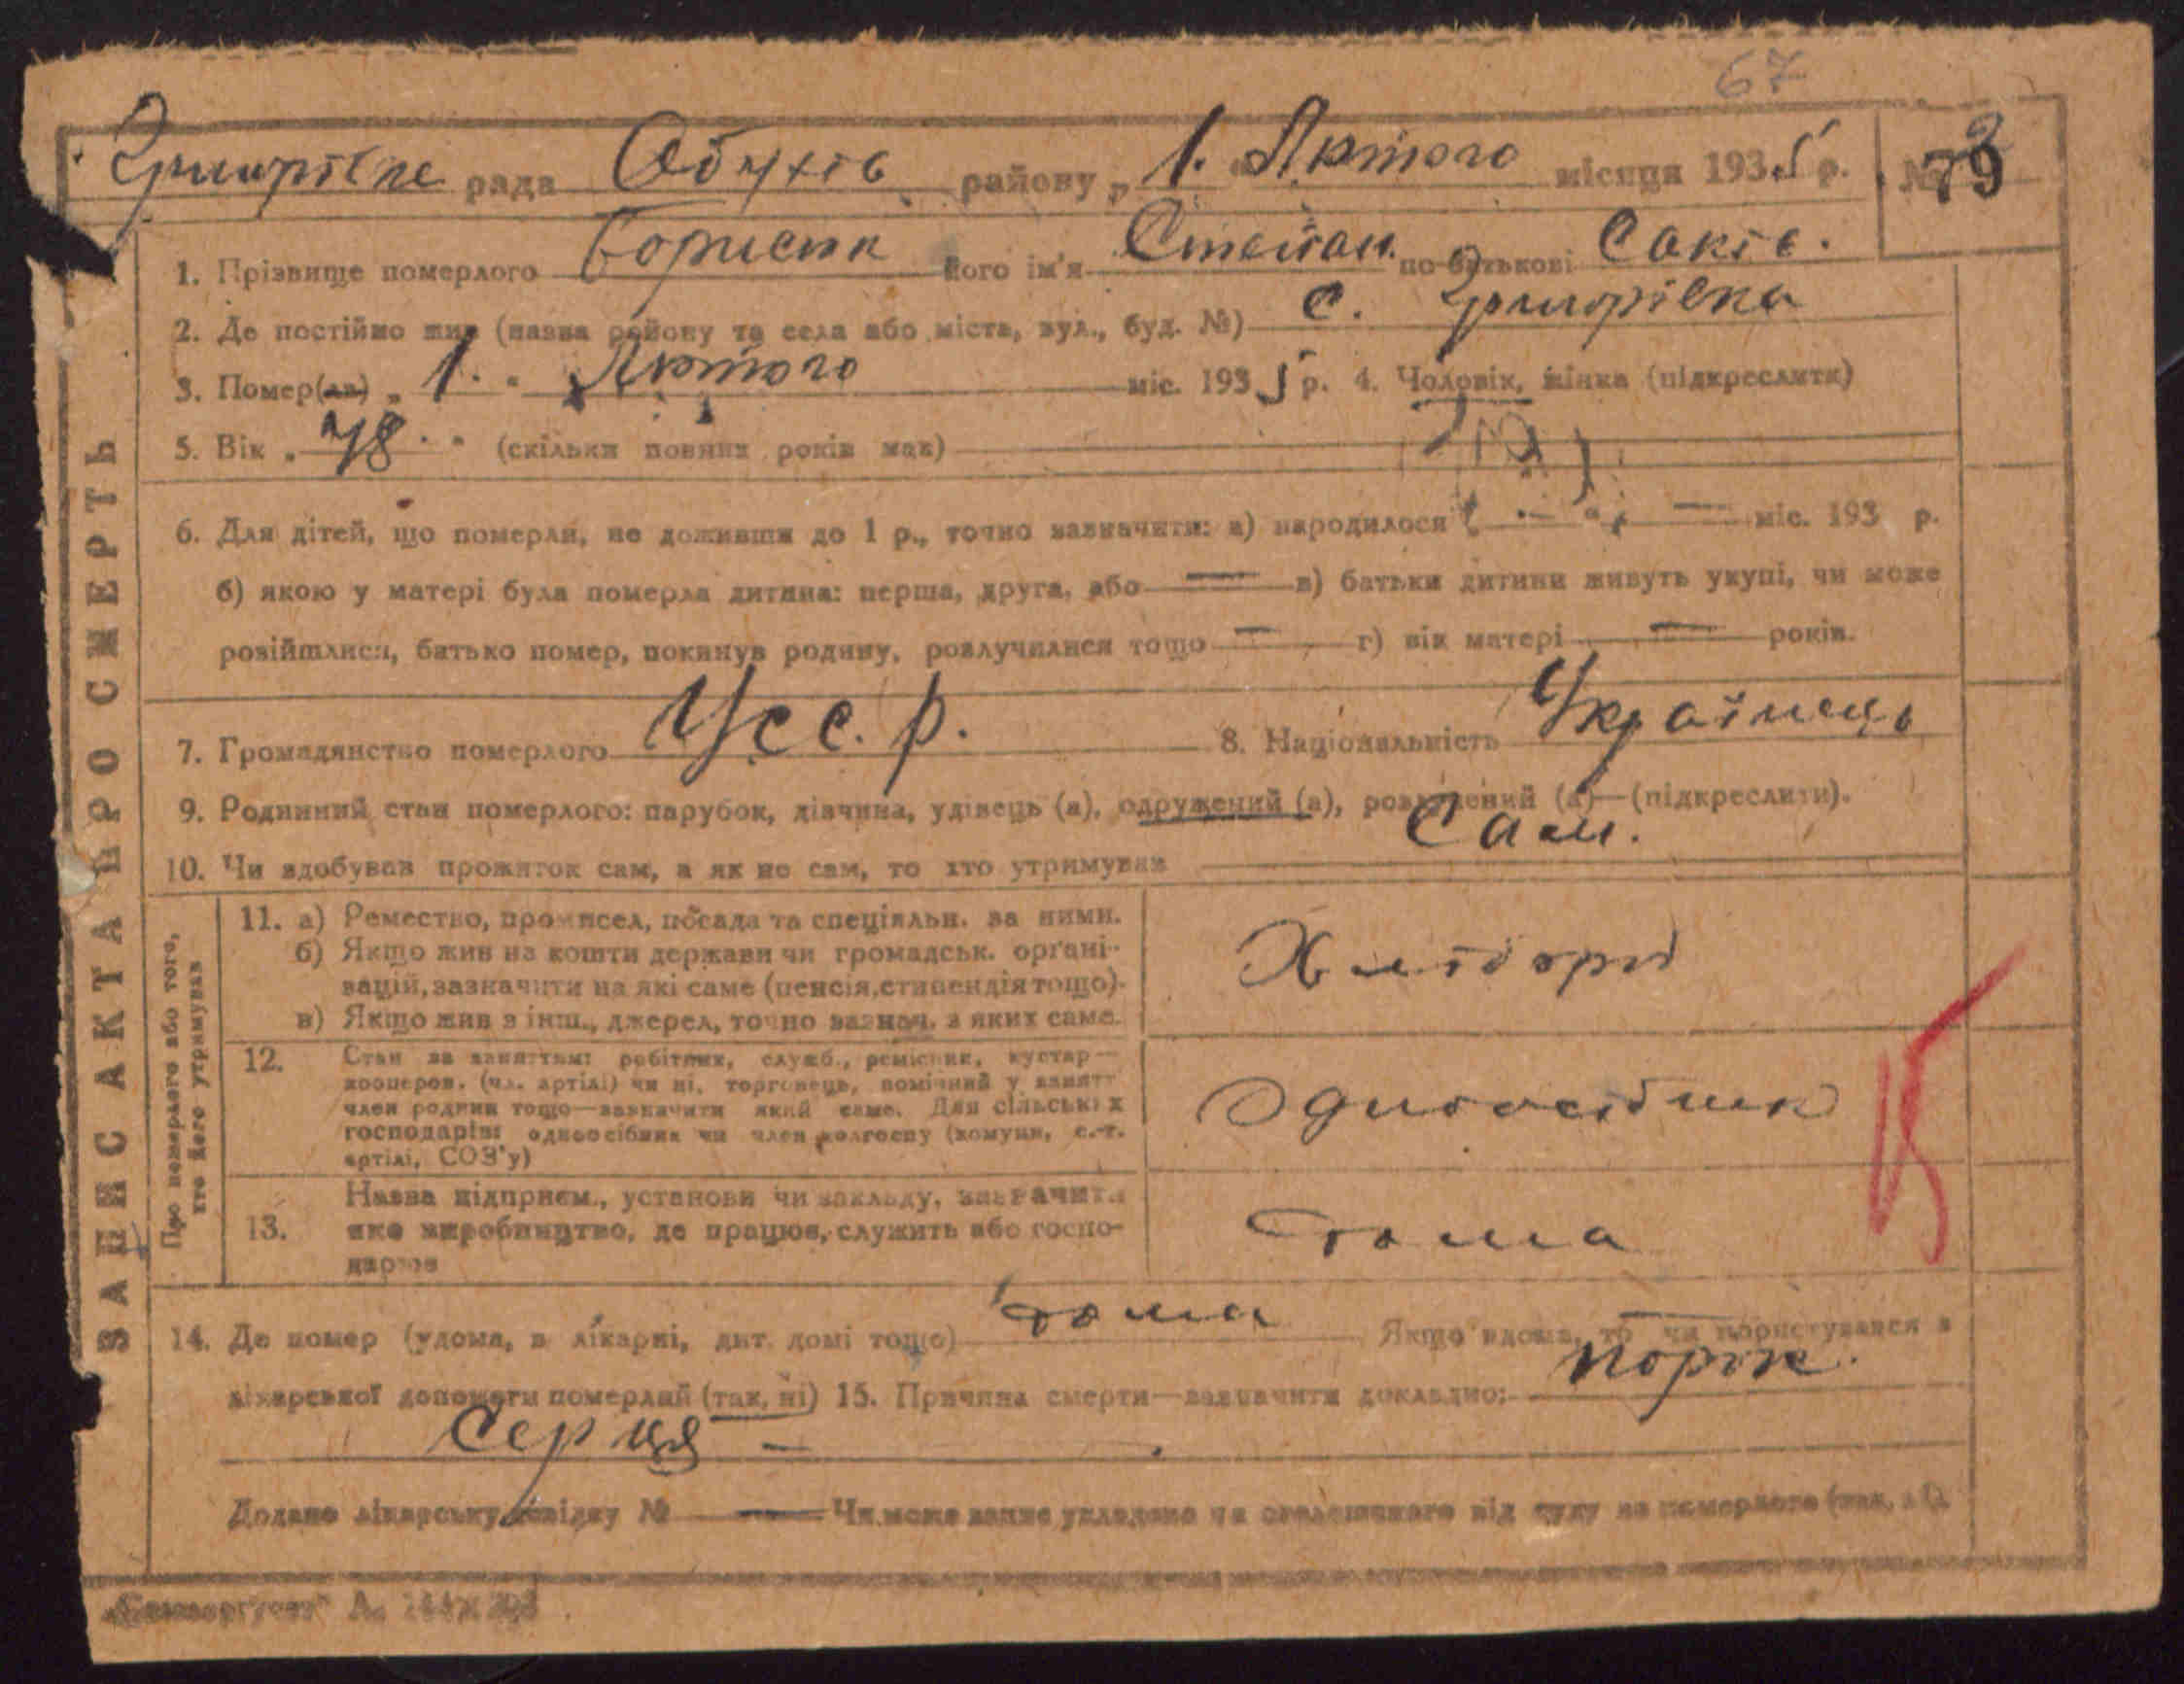 67
рада Обухів району „ 1. " Лютого місяця 1935 р. № 79
1. Прізвище померлого його ім'я Степан. по батькові Саків.
2. Де постійно жив (назва району та села або міста, вул., буд. №) с.
3. Помер(ла) „ 1. " Лютого міс. 1935 р. 4. Чоловік, жінка (підкреслити)
5. Вік „ 78. " (скільки повних років мав)
6. Для дітей, що померли, не доживши до 1 р., точно зазначити: а) народилося „ — " — міс. 193 р.
б) якою у матері була померла дитина: перша, друга, або — в) батьки дитини живуть укупі, чи може
розійшлися, батько помер, покинув родину, розлучилися тощо — г) вік матері — років.
7. Громадянство померлого УСС.Р. 8. Національність Українець
9. Родинний стан померлого: парубок, дівчина, удівець (а), одружений (а), розлучений (а)—(підкреслити).
10. Чи здобував прожиток сам, а як не сам, то хто утримував Сам.
ЗАПИС АКТА ПРО СМЕРТЬ
Про померлого або того, хто його утримував
11. а) Ремество, промисел, посада та спеціяльн. за ними.
б) Якщо жив на кошти держави чи громадськ. органі-
зацій, зазначити на які саме (пенсія, стипендія тощо).
в) Якщо жив з інш., джерел, точно зазнач. з яких саме.
Хлібороб
12. Стан за заняттям: робітник, служб., ремісник, кустар—
кооперов. (чл. артілі) чи ні, торговець, помічний у занятті
член родини тощо—зазначити який саме. Для сільських
господарів: одноосібник чи член колгоспу (комуни, с.-г.
артілі, СОЗ'у)
Одноосібник
13. Назва підприєм., установи чи закладу, зазначити
яке виробництво, де працює, служить або госпо-
дарює
дома
14. Де помер (удома, в лікарні, дит. домі тощо) дома Якщо вдома, то чи користувався з
лікарської допомоги померлий (так, ні) 15. Причина смерти—зазначити докладно: порок
серця —
Додано лікарську довідку № — Чи може запис укладено чи від суду на померлого (так, ні).